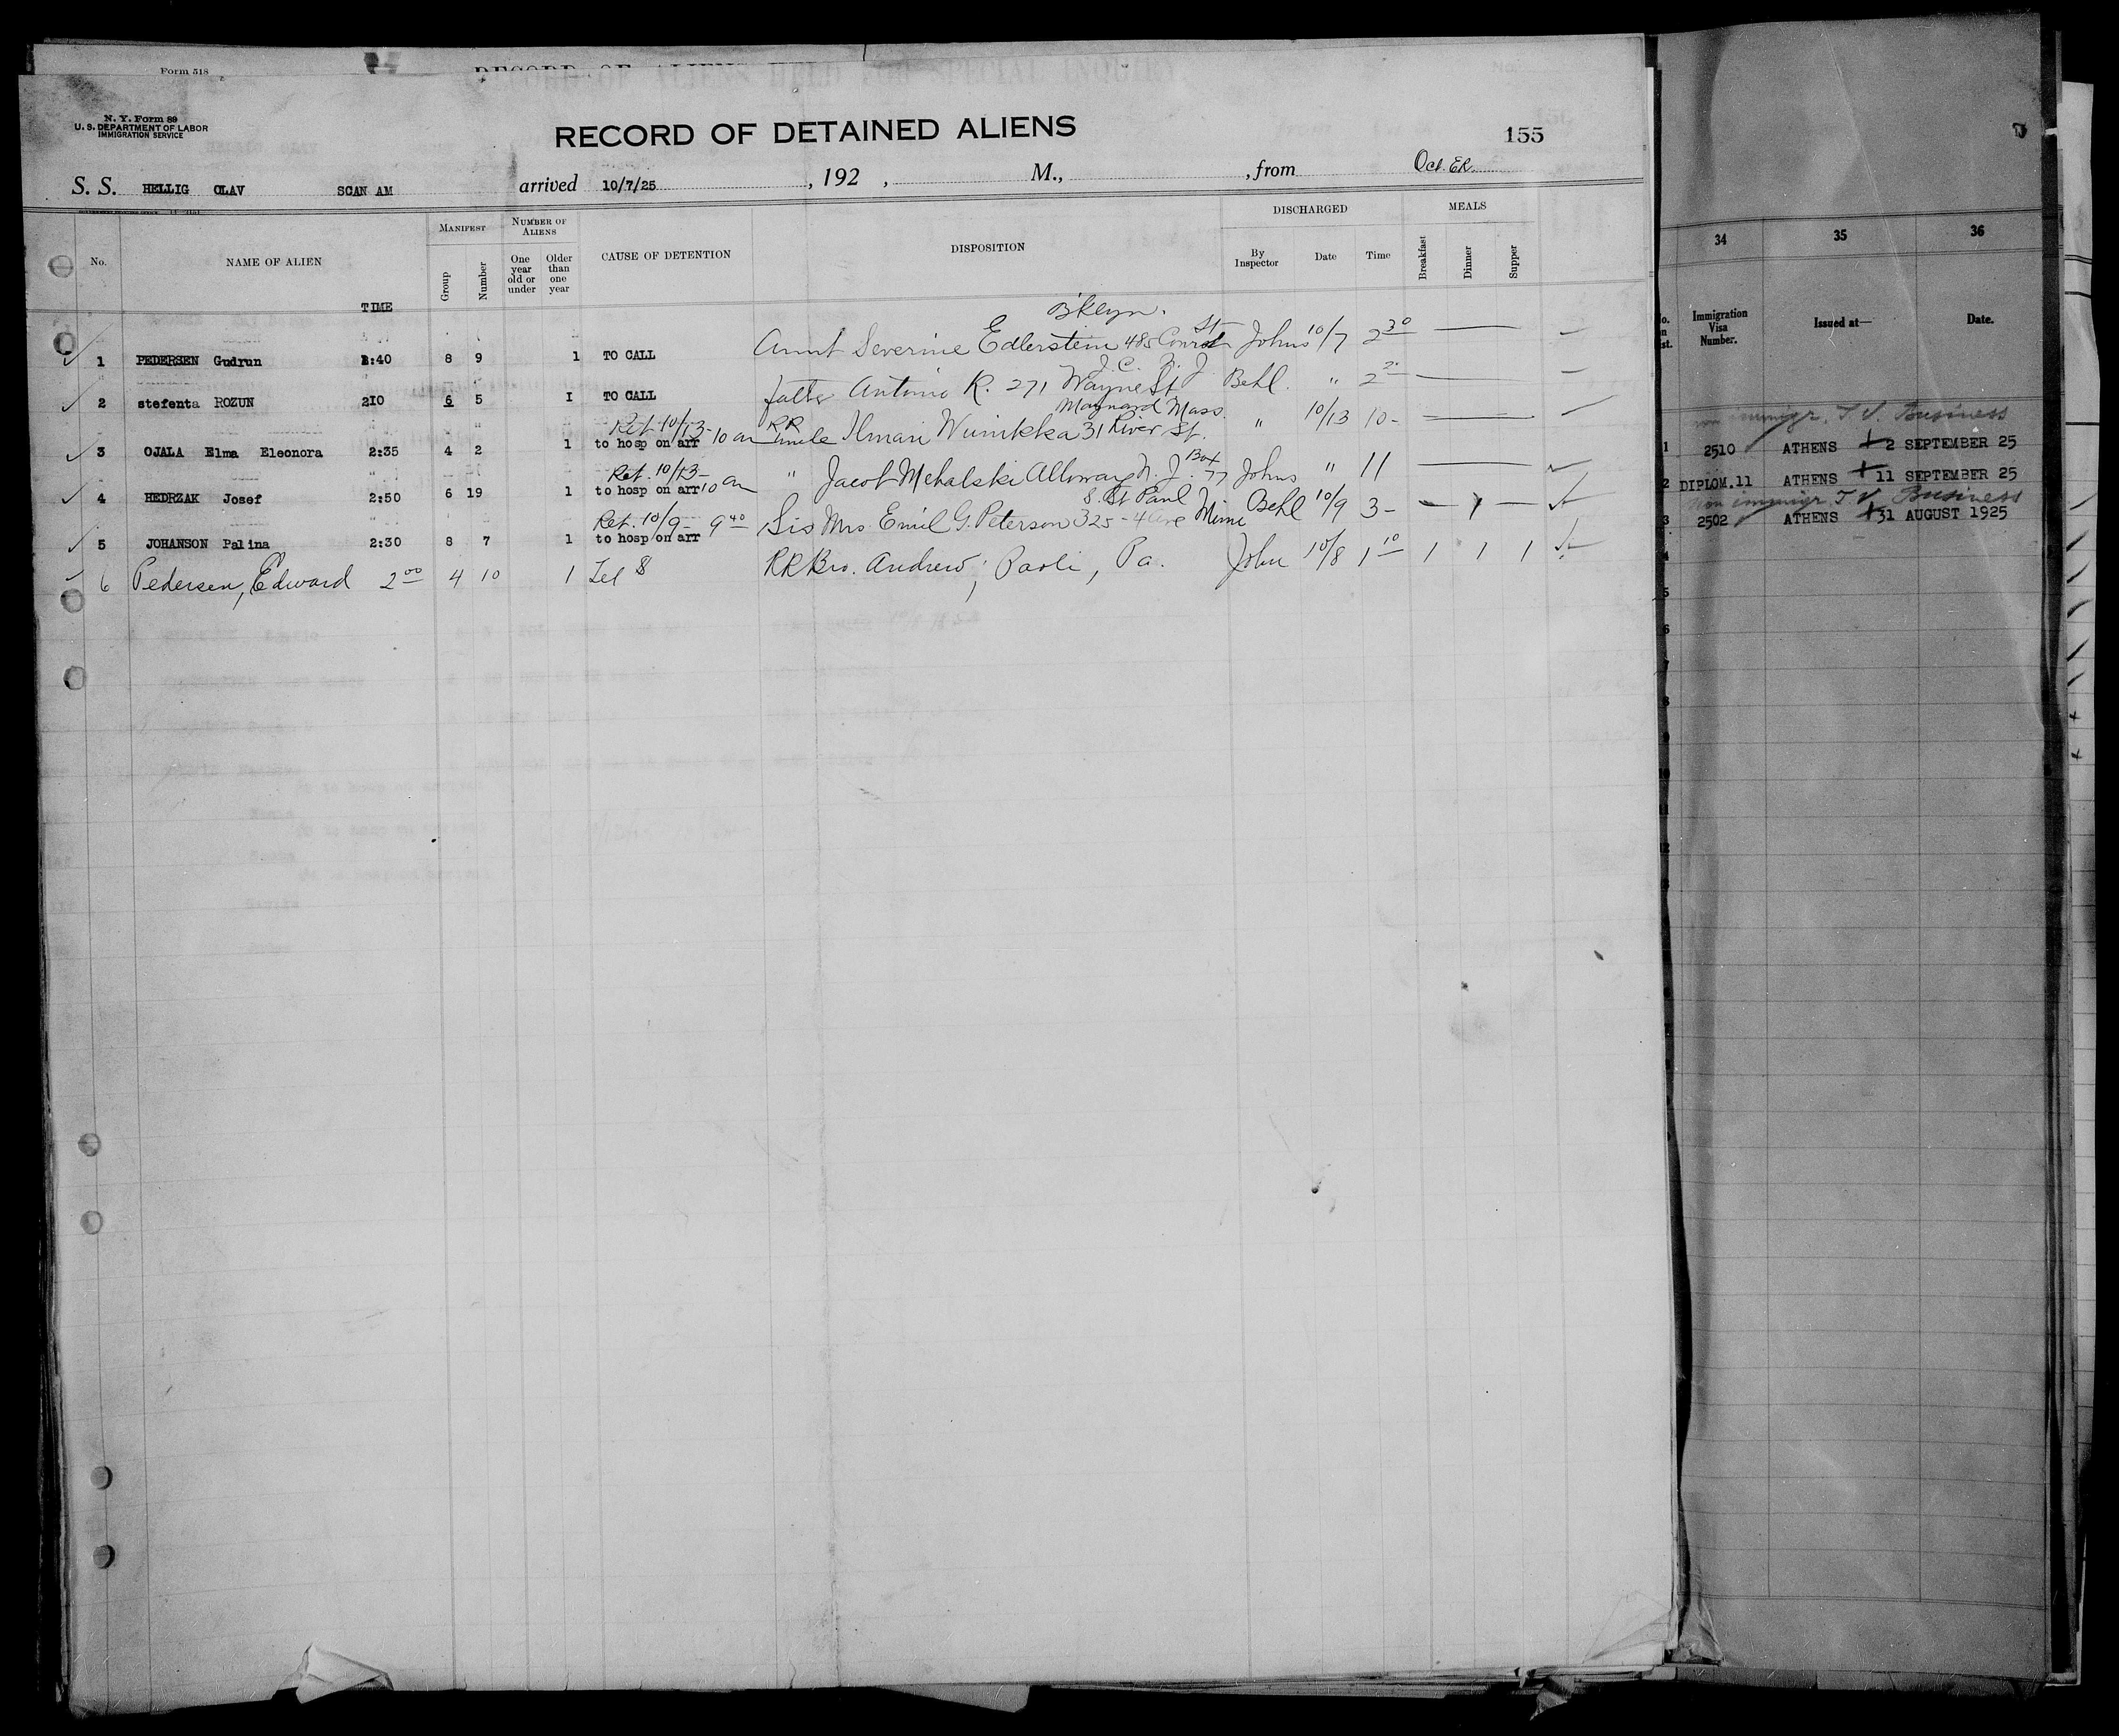 Form 518
N. Y. Form 89
U. S. DEPARTMENT OF LABOR
IMMIGRATION SERVICE
RECORD OF DETAINED ALIENS
155
S. S. HELLIG OLAV SCAN AM arrived 10/7/25, 192 , M., , from
No. NAME OF ALIEN TIME MANIFEST Group Number NUMBER OF ALIENS One year old or under Older than one year CAUSE OF DETENTION DISPOSITION DISCHARGED By Inspector Date Time MEALS Breakfast Dinner Supper
B'klyn.
1 PEDERSEN Gudrun 2:40 8 9 1 TO CALL Aunt Severine Edlerstein 485 St Johns 10/7 2 30
J. C. N. J.
2 stefenta ROZUN 210 6 5 I TO CALL father Antonio R. 271 Wayne St Behl. " 2
Ret 10/13- 10 am RR Maynard Mass.
3 OJALA Elma Eleonora 2:35 4 2 1 to hosp on arr Uncle Ilmari Wuinkka 31 River St. " 10/13 10-
Ret. 10/13- 10 am Box
4 HEDRZAK Josef 2:50 6 19 1 to hosp on arr " Jacob Mehalski Alloway N. J. 77 Johns " 11
Ret. 10/9- 9 40 S. St Paul
5 JOHANSON Palina 2:30 8 7 1 to hosp on arr Sis Mrs. Emil G. Peterson 325-4 Ave Minn Behl 10/9 3- - 1 -
6 Pedersen, Edward 2 00 4 10 1 Tel $ RR Bro. Andrew, Paoli, Pa. John 10/8 1 10 1 1 1
34 35 36
Immigration Visa Number. Issued at— Date.
non immigr. T. V. Business
1 2510 ATHENS 2 SEPTEMBER 25
2 DIPLOM.11 ATHENS 11 SEPTEMBER 25
Non immigr T. V. Business
3 2502 ATHENS 31 AUGUST 1925
4
5
6
7
8
9
10
11
12